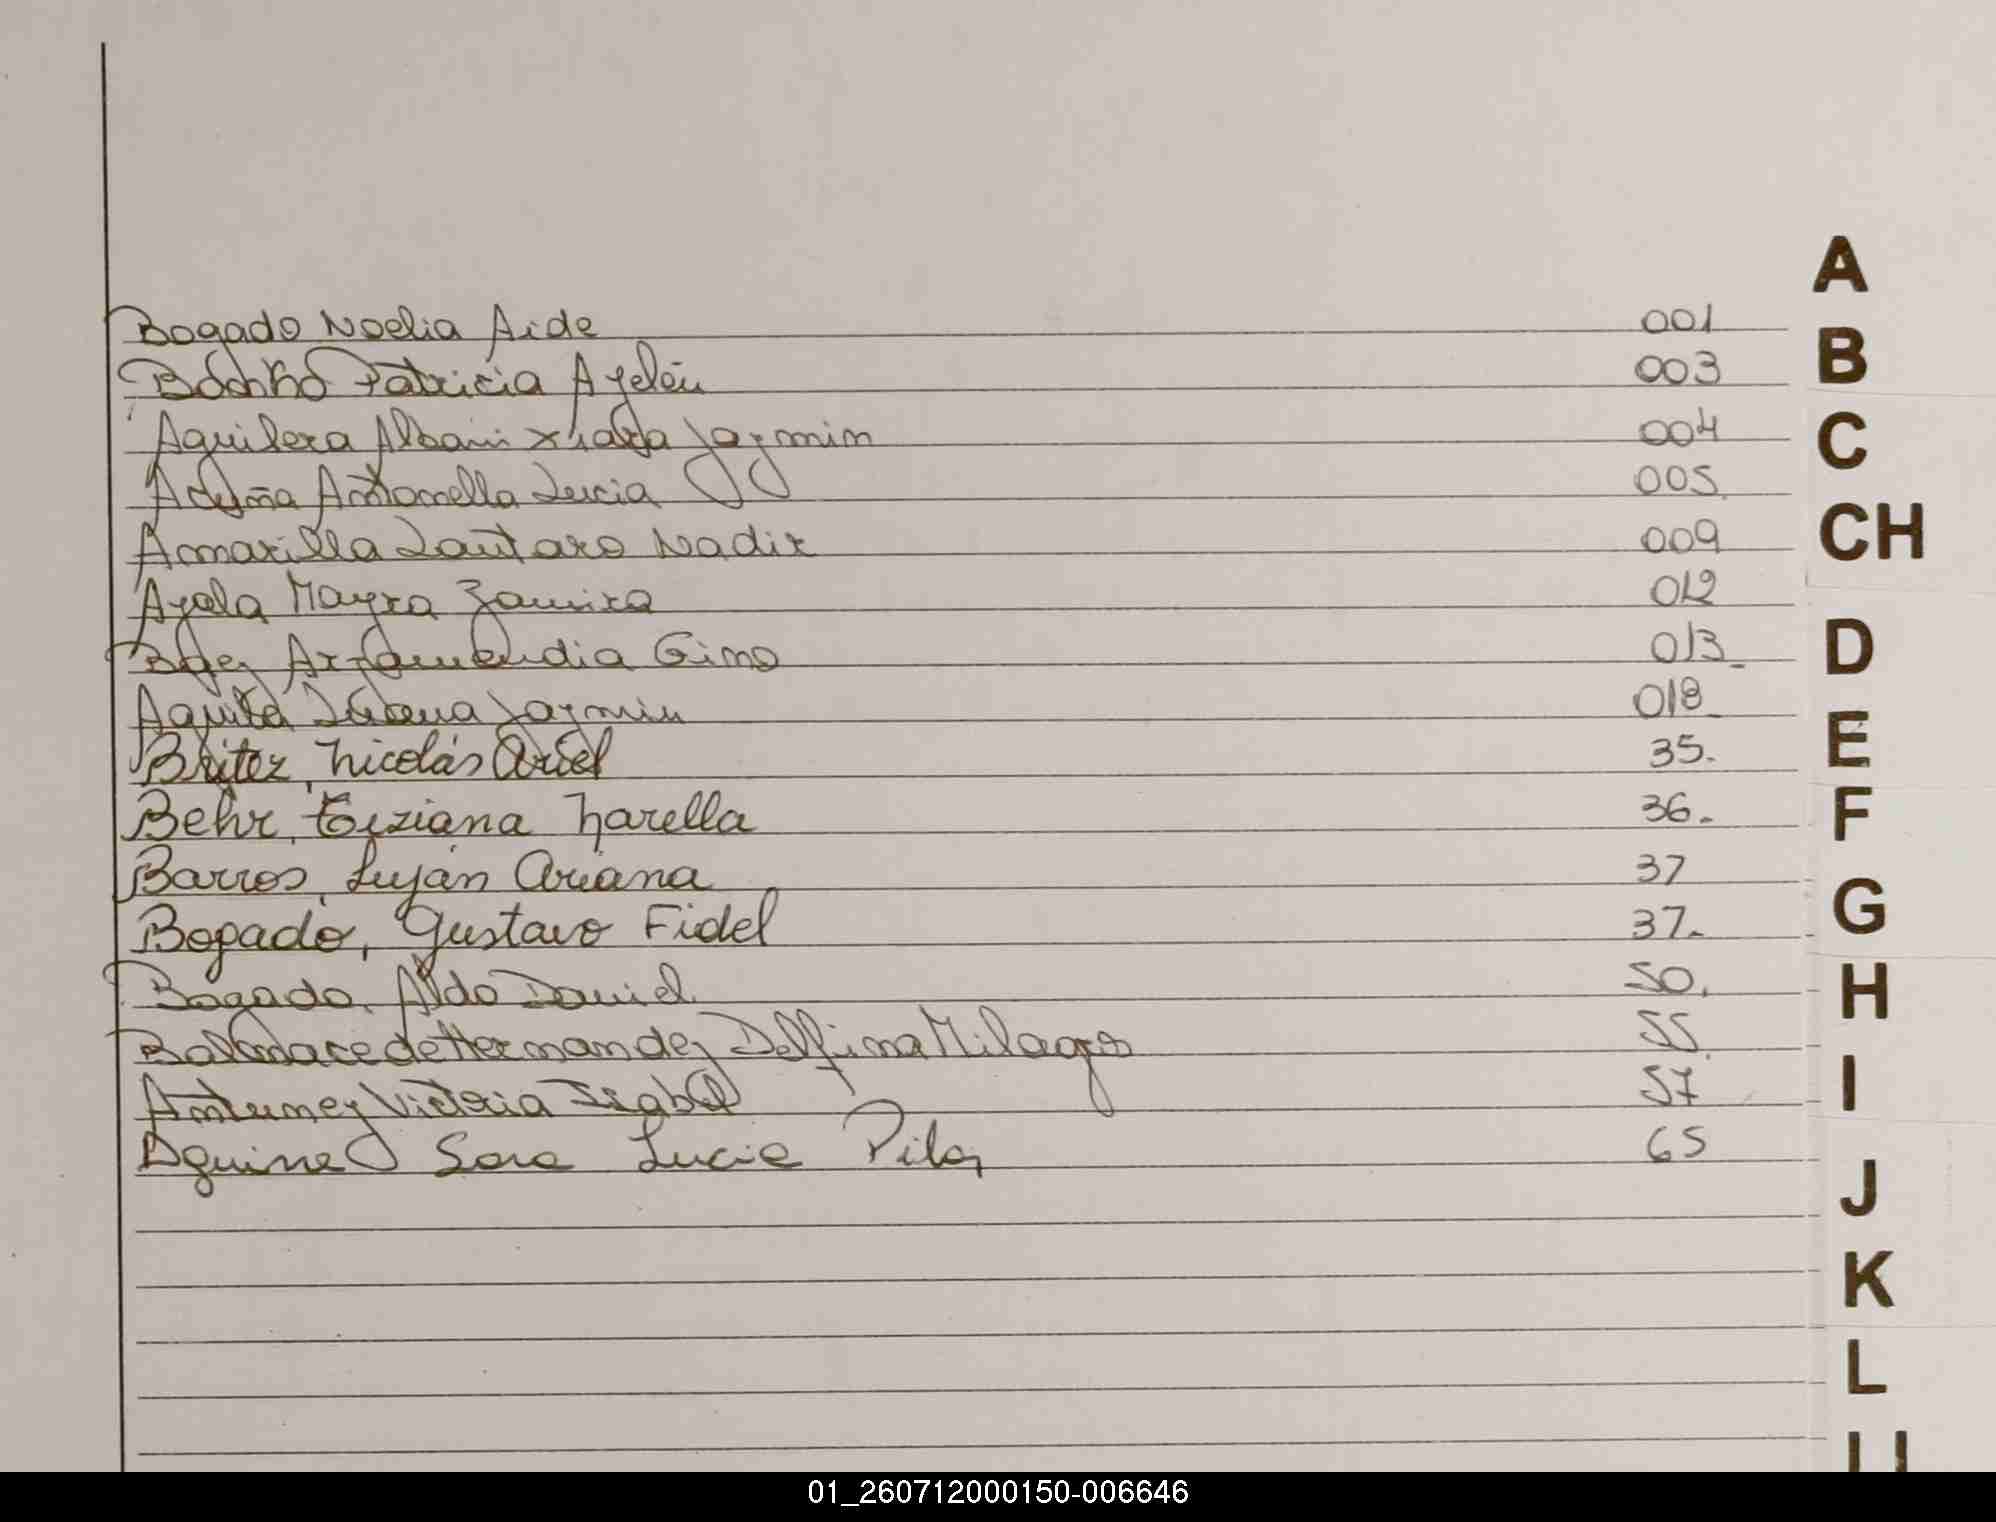 A
Bogado Noelia Aide 001
B
Patricia Ayelén 003
Aguilera Albani Xiara Jazmin 004
C
Acuña Antonella Lucia 005.
CH
Amarilla Lautaro Nadir 009
Ayala Mayra Zamira 012
D
Baez Arzamendia Gino 013
Jazmin 018
E
Britez, Nicolás Ariel 35.
F
Behr, Tiziana Narella 36.
Barros, Luján Ariana 37
G
Bogado, Gustavo Fidel 37.
H
Bogado, Aldo Daniel 50.
Hernandez Delfina Milagros 55.
I
Antunez Victoria Isabel 57
Sara Lucia Pilar 65
J
K
L
01_260712000150-006646